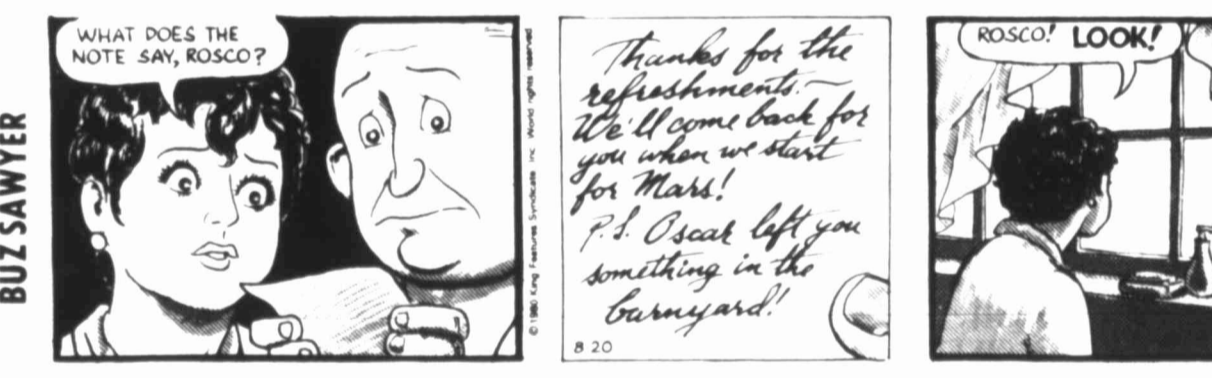 BUZ SAWYER
WHAT DOES THE
NOTE SAY, ROSCO?
© 1980 King Features Syndicate Inc World rights reserved
Thanks for the
refreshments. —
We'll come back for
you when we start
for Mars!
P.S. Oscar left you
something in the
barnyard!
8 20
ROSCO! LOOK!